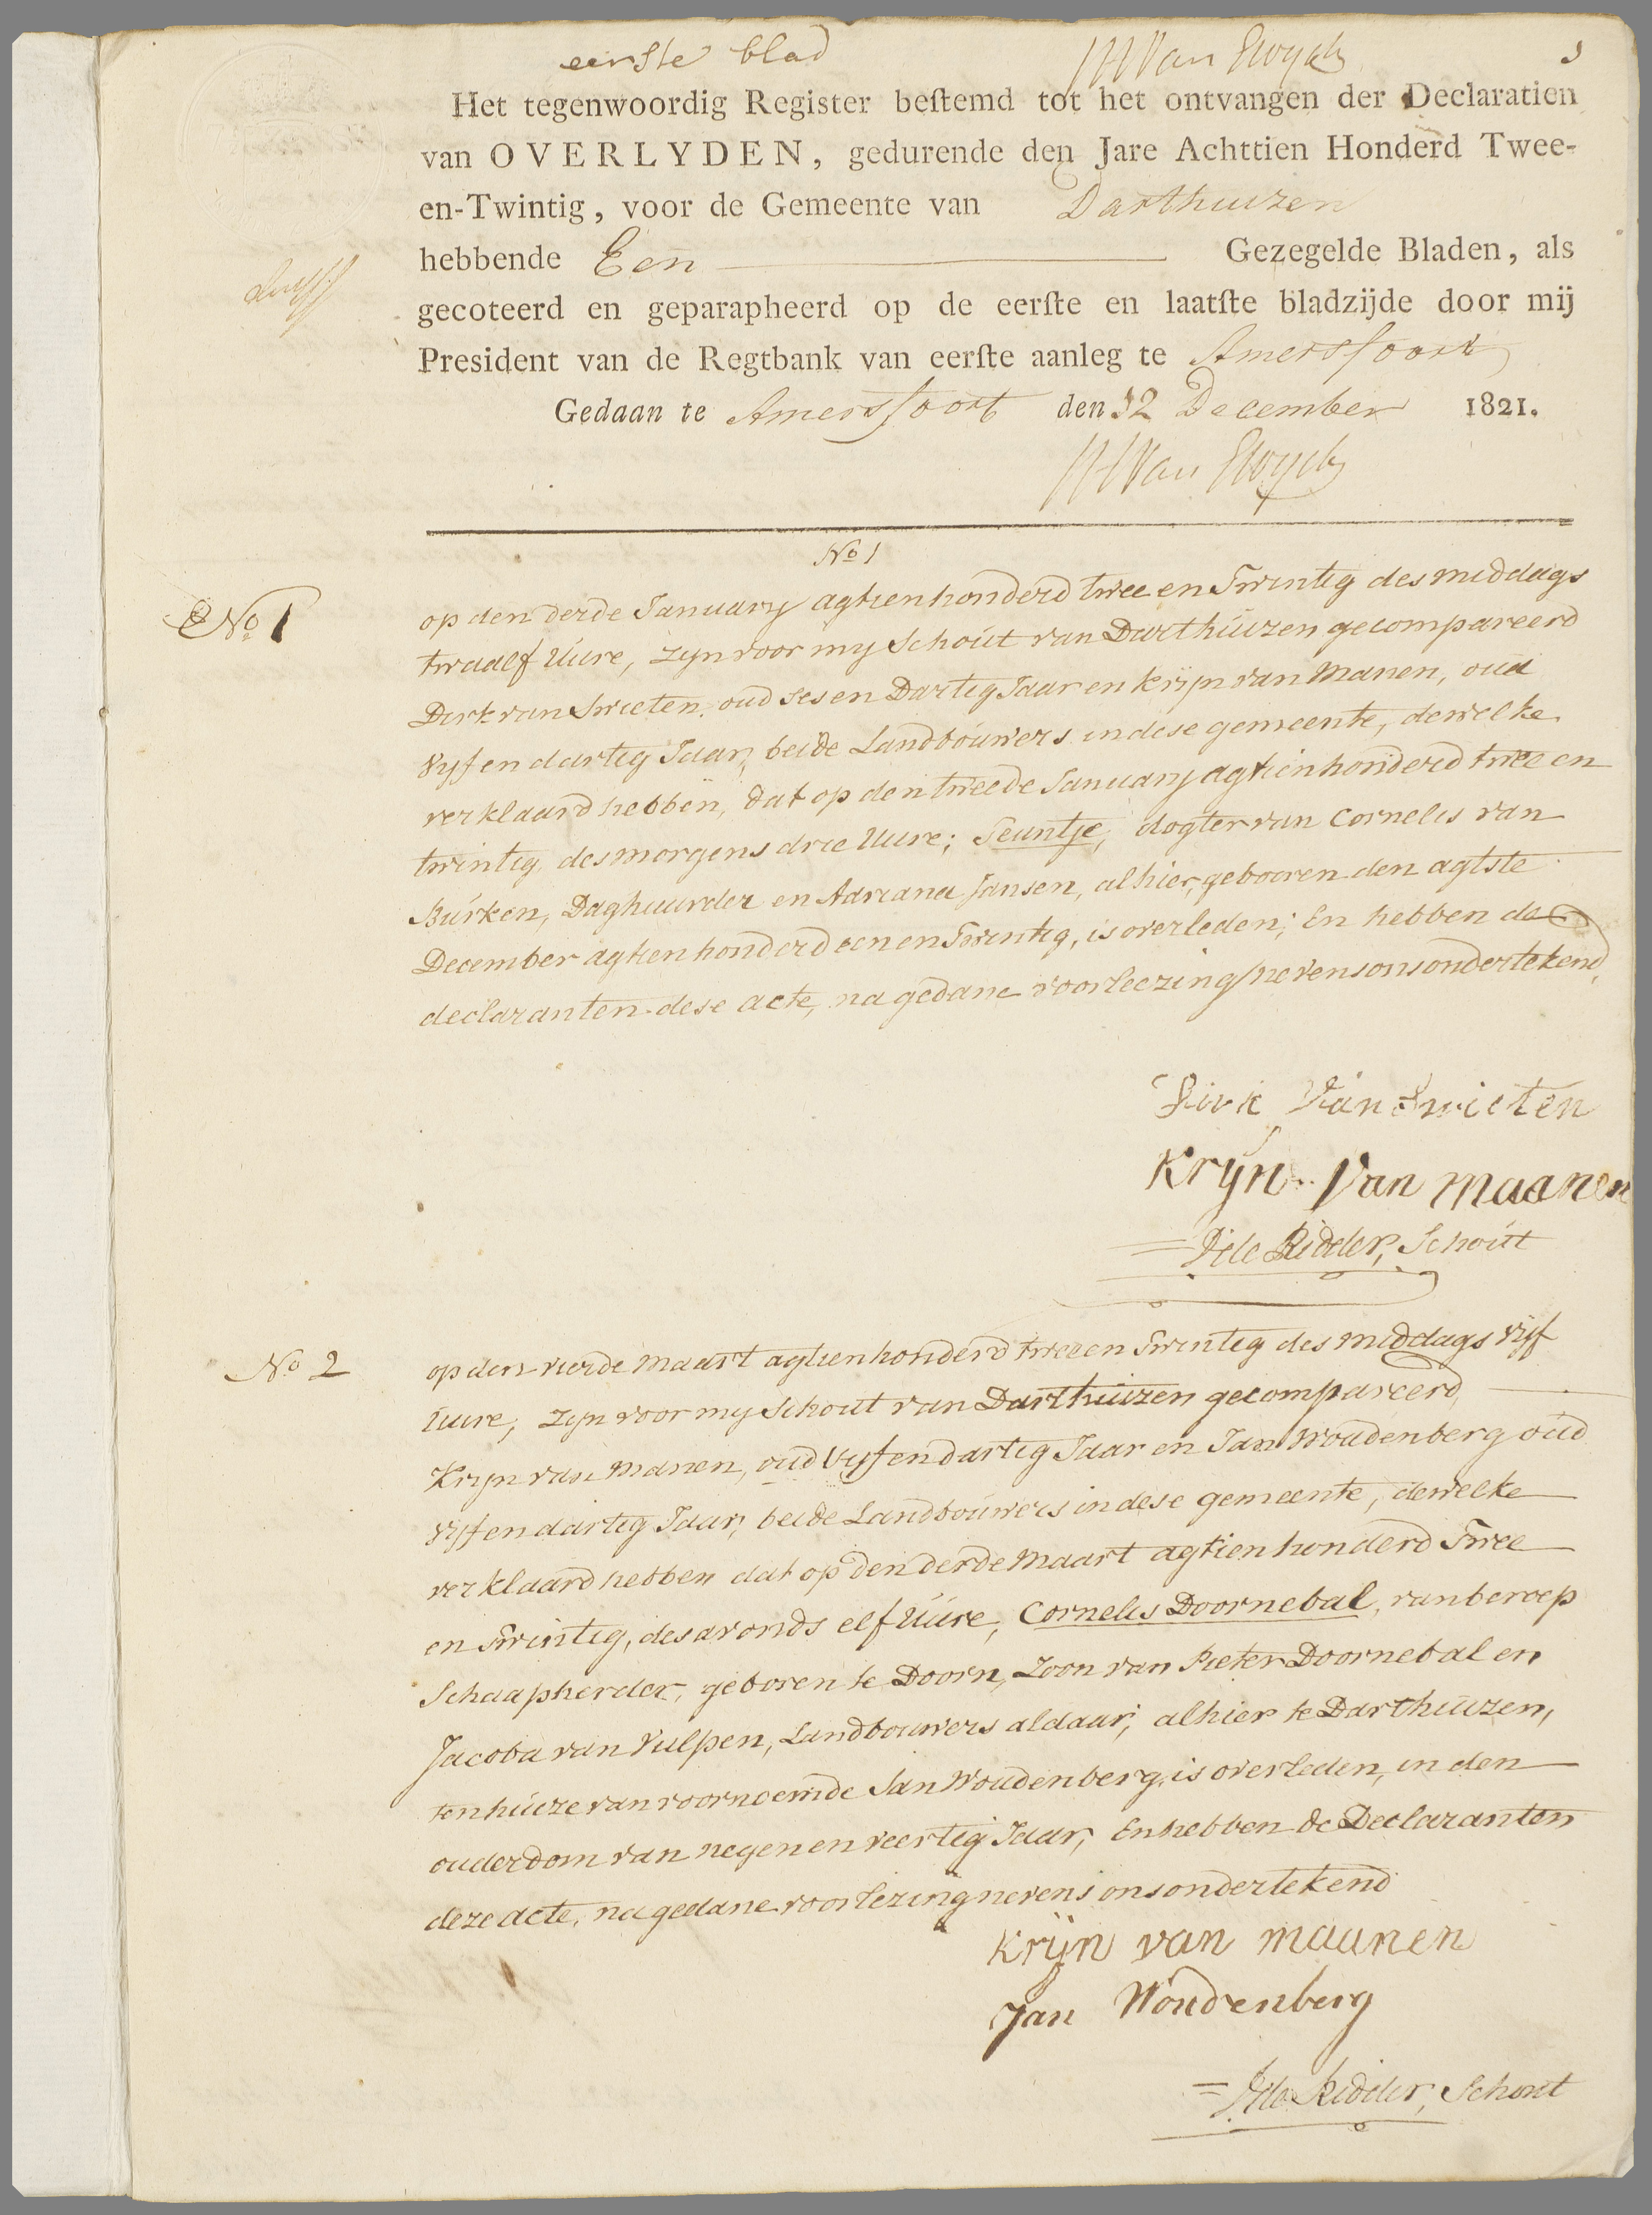 eerste blad
Het tegenwoordig Register beſtemd tot het ontvangen der Declaratien
van OVERLYDEN, gedurende den Jare Achttien Honderd Twee-
en-Twintig, voor de Gemeente van Darthuizen
hebbende Een Gezegelde Bladen, als
gecoteerd en geparapheerd op de eerſte en laatſte bladzijde door mij
President van de Regtbank van eerſte aanleg te Amersfoort
Gedaan te Amersfoort den 12 December 1821.
No 1
No 1
op den derde January agtien honderd twee en Twintig des middags
twaalf Uure, zyn voor my Schout van Darthuizen gecompareerd
Dirk van Swieten, oud ses en Dartig Jaar en Krijn van Manen, oud
Vyf en dartig Jaar, beide Landbouwers in dese gemeente, dewelke
verklaard hebben, dat op den tweede January agtien honderd twee en
twintig, des morgens drie Uure; Teuntje, dogter van Cornelis van
Burken, Daghuurder en Adriana Jansen, alhier, gebooren den agtste
December agtien honderd een en Twintig, is overleden; En hebben de
declaranten dese acte, na gedane voorleezing nevens ons ondertekend,
Dirk Van Swieten
Krijn Van Maanen
de Ridder, Schout
No 2
op den vierde maart agtien honderd twee en Twintig des middags vijf
Uure, zyn voor my Schout van Darthuizen gecompareerd,
Krijn van Manen, oud Vyf en dartig Jaar en Jan Woudenberg oud
vyf en dartig Jaar, beide Landbouwers in dese gemeente, dewelke
verklaard hebben dat op den derde Maart agtien honderd Twee
en Twintig, des avonds elf Uure, Cornelis Doornebal, van beroep
Schaapherder, geboren te Doorn, Zoon van Pieter Doornebal en
Jacoba van Vulpen, Landbouwers aldaar, alhier te Darthuizen,
ten huize van voornoemde Jan Woudenberg, is overleden, in den
ouderdom van negen en veertig Jaar, En hebben de Declaranten
deze acte, na gedane voorlezing nevens ons ondertekend
Krijn van Maanen
Jan Woudenberg
de Ridder, Schout